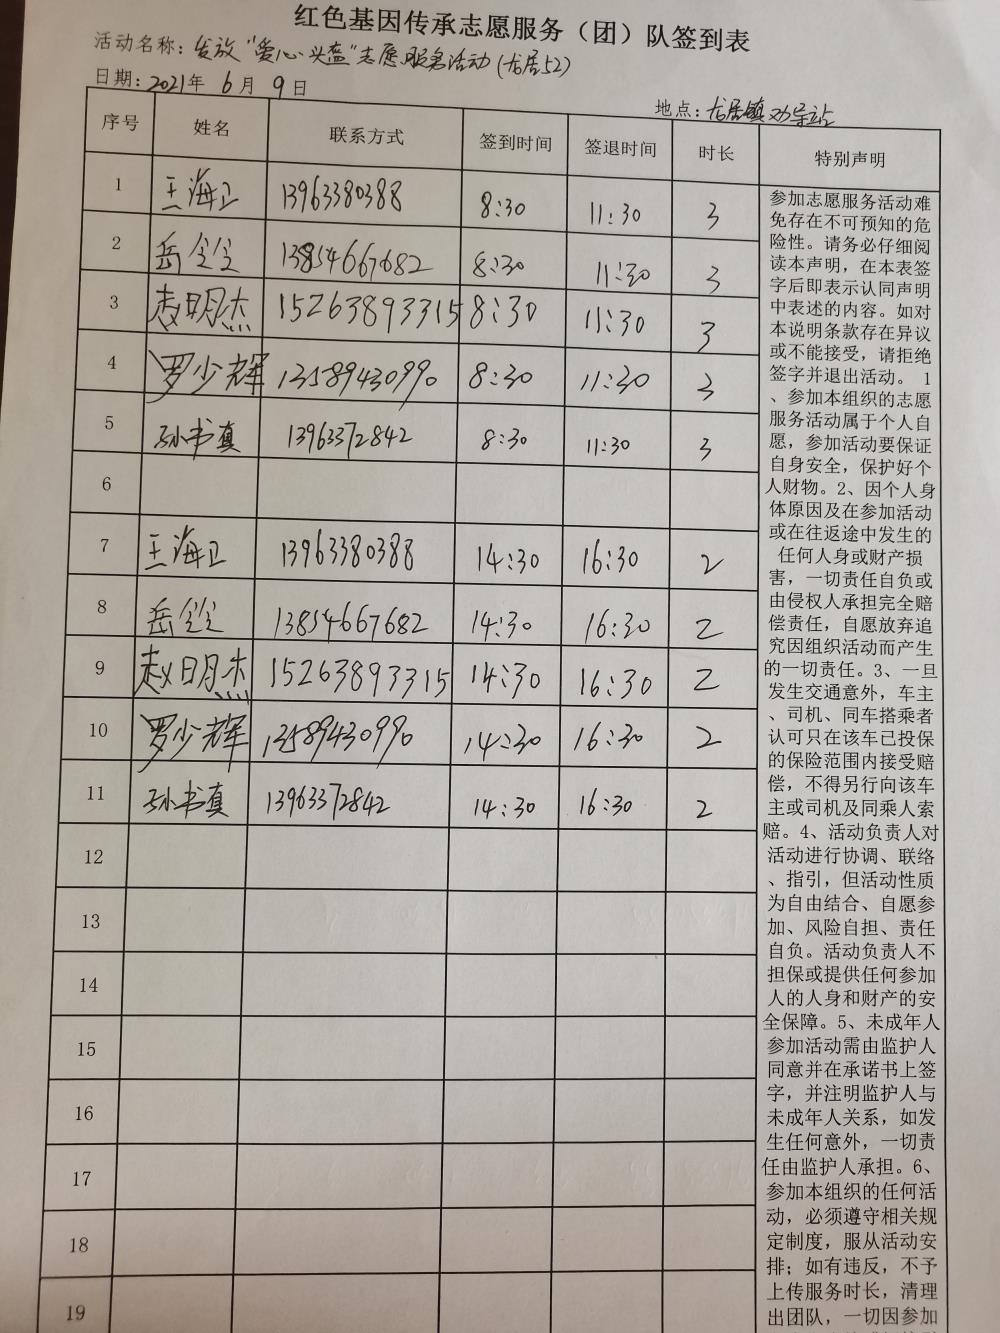 红色基因传承志愿服务（团）队签到表
活动名称：发放“爱心头盔”志愿服务活动（龙居52）
日期：2021年 6月 9日
地点：龙居镇劝导站
序号 姓名 联系方式 签到时间 签退时间 时长 特别声明
1 王海卫 13963380388 8:30 11:30 3
2 岳 13854667682 8:30 11:30 3
3 赵明杰 15263893315 8:30 11:30 3
4 罗少辉 13589430990 8:30 11:30 3
5 孙书真 13963372842 8:30 11:30 3
6
7 王海卫 13963380388 14:30 16:30 2
8 岳 13854667682 14:30 16:30 2
9 赵明杰 15263893315 14:30 16:30 2
10 罗少辉 13589430990 14:30 16:30 2
11 孙书真 13963372842 14:30 16:30 2
12
13
14
15
16
17
18
19
参加志愿服务活动难
免存在不可预知的危
险性。请务必仔细阅
读本声明，在本表签
字后即表示认同声明
中表述的内容。如对
本说明条款存在异议
或不能接受，请拒绝
签字并退出活动。 1
、参加本组织的志愿
服务活动属于个人自
愿，参加活动要保证
自身安全，保护好个
人财物。2、因个人身
体原因及在参加活动
或在往返途中发生的
任何人身或财产损
害，一切责任自负或
由侵权人承担完全赔
偿责任，自愿放弃追
究因组织活动而产生
的一切责任。3、一旦
发生交通意外，车主
、司机、同车搭乘者
认可只在该车已投保
的保险范围内接受赔
偿，不得另行向该车
主或司机及同乘人索
赔。4、活动负责人对
活动进行协调、联络
、指引，但活动性质
为自由结合、自愿参
加、风险自担、责任
自负。活动负责人不
担保或提供任何参加
人的人身和财产的安
全保障。5、未成年人
参加活动需由监护人
同意并在承诺书上签
字，并注明监护人与
未成年人关系，如发
生任何意外，一切责
任由监护人承担。6、
参加本组织的任何活
动，必须遵守相关规
定制度，服从活动安
排；如有违反，不予
上传服务时长，清理
出团队，一切因参加